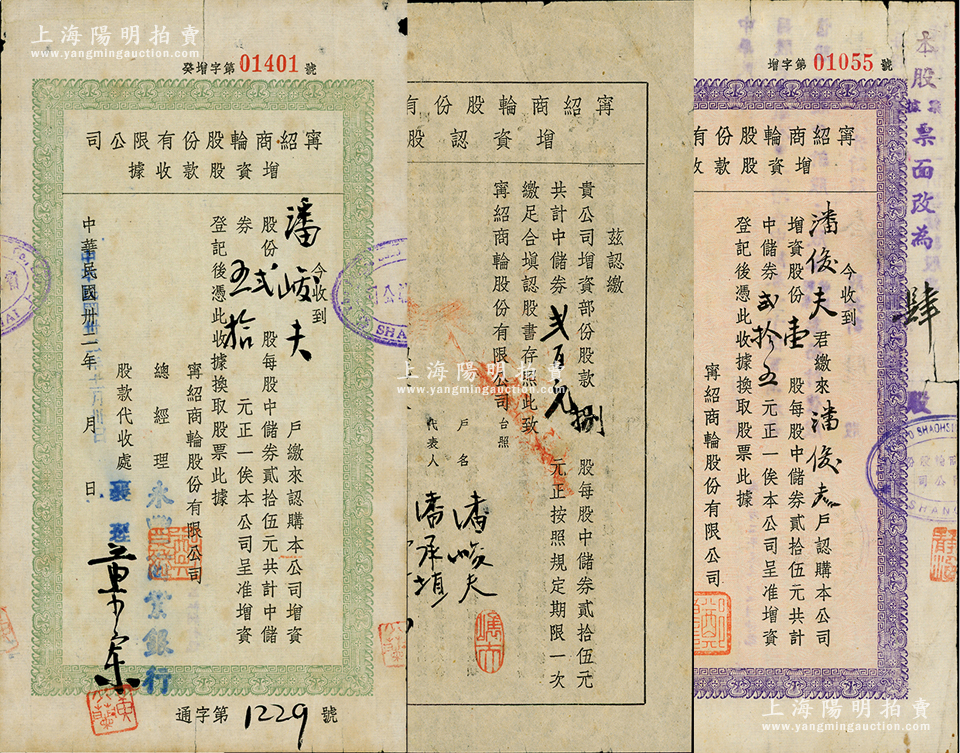 上海陽明拍賣
www.yangmingauction.com
癸增字第 01401 號
甯紹商輪股份有限公司
增資股款收據
今收到
潘峻夫 戶繳來認購本公司增資
股份 弍 股每股中儲券貳拾伍元共計中儲
券 五拾 元正一俟本公司呈准增資
登記後憑此收據換取股票此據
甯紹商輪股份有限公司
總經理
股款代收處
永 業銀行
中華民國卅二年 月 日
通字第 1229 號
甯紹商輪股份有
增資認股
茲認繳
貴公司增資部份股款 捌 股每股中儲券貳拾伍元
共計中儲券 弍百元 元正按照規定期限一次
繳足合填認股書存照此致
甯紹商輪股份有限公司 台照
戶名 潘峻夫
代表人 潘承
上海陽明拍賣
www.yangmingauction.com
增字第 01055 號
甯紹商輪股份有
增資股款收
今收到
潘俊夫 君繳來 潘俊夫 戶認購本公司
增資股份 壹 股每股中儲券貳拾伍元共計
中儲券 弍拾五 元正一俟本公司呈准增資
登記後憑此收據換取股票此據
甯紹商輪股份有限公司
本股票面改為 肆 股
上海陽明拍賣
www.yangmingauction.com